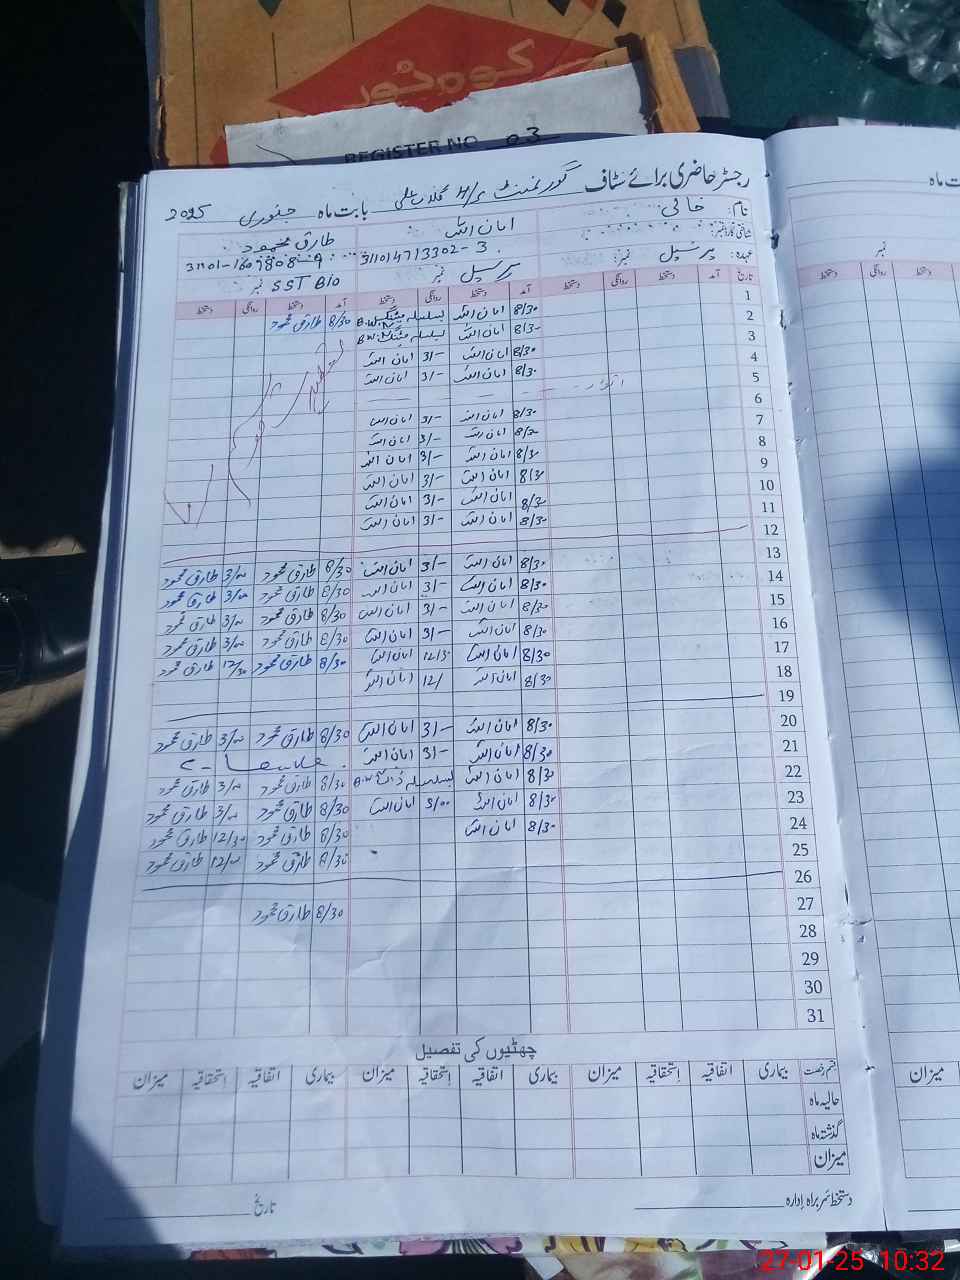 کوہ نور
REGISTER NO 03
رجسٹر حاضری برائے سٹاف گورنمنٹ بابت ماہ جنوری 2025
نام: خالی امان اللہ طارق محمود
شناختی کارڈ نمبر: 31101-4713302-3
عہدہ: پرنسپل نمبر: پرنسپل نمبر SST Bio نمبر
تاریخ آمد دستخط روانگی دستخط آمد دستخط روانگی دستخط آمد دستخط روانگی دستخط
1
2 8/30 امان اللہ بسلسلہ میٹنگ B.W.N 8/30 طارق محمود
3 8/30 امان اللہ بسلسلہ میٹنگ B.W.N
4 8/30 امان اللہ 3/- امان اللہ
5 8/30 امان اللہ 3/- امان اللہ
6
7 8/30 امان اللہ 3/- امان اللہ
8 8/30 امان اللہ 3/- امان اللہ
9 8/30 امان اللہ 3/- امان اللہ
10 8/30 امان اللہ 3/- امان اللہ
11 8/30 امان اللہ 3/- امان اللہ
12 8/30 امان اللہ 3/- امان اللہ
13 8/30 امان اللہ 3/- امان اللہ 8/30 طارق محمود 3/00 طارق محمود
14 8/30 امان اللہ 3/- امان اللہ 8/30 طارق محمود 3/00 طارق محمود
15 8/30 امان اللہ 3/- امان اللہ 8/30 طارق محمود 3/00 طارق محمود
16 8/30 امان اللہ 3/- امان اللہ 8/30 طارق محمود 3/00 طارق محمود
17 8/30 امان اللہ 12/30 امان اللہ 8/30 طارق محمود 12/30 طارق محمود
18 8/30 امان اللہ 12/ امان اللہ
19
20 8/30 امان اللہ 3/- امان اللہ 8/30 طارق محمود 3/00 طارق محمود
21 8/30 امان اللہ 3/- امان اللہ
22 8/30 امان اللہ بسلسلہ B.W.N 8/30 طارق محمود 3/00 طارق محمود
23 8/30 امان اللہ 3/00 امان اللہ 8/30 طارق محمود 3/00 طارق محمود
24 8/30 امان اللہ 8/30 طارق محمود 12/30 طارق محمود
25 8/30 طارق محمود 12/00 طارق محمود
26
27 8/30 طارق محمود
28
29
30
31
چھٹیوں کی تفصیل
قسم رخصت بیماری اتفاقیہ استحقاقیہ میزان بیماری اتفاقیہ استحقاقیہ میزان بیماری اتفاقیہ استحقاقیہ میزان
حالیہ ماہ
گذشتہ ماہ
میزان
دستخط سربراہ ادارہ تاریخ
ت ماہ
نمبر
دستخط روانگی دستخط
میزان
27-01-25 10:32